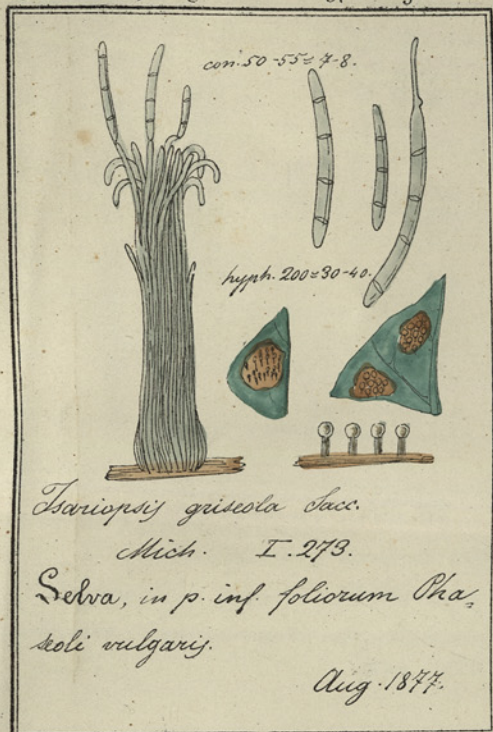 con. 50-55=7-8.
hyph. 200=30-40.
Isariopsis griseola Sacc.
Mich. I. 273.
Selva, in p. inf. foliorum Pha=
seoli vulgaris.
Aug. 1877.